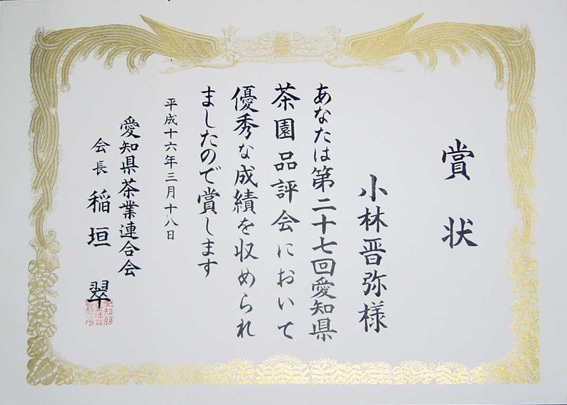 賞状
小林晋弥様
あなたは第二十七回愛知県
茶園品評会において
優秀な成績を収められ
ましたので賞します
平成十六年三月十八日
愛知県茶業連合会
会長 稲垣 翠